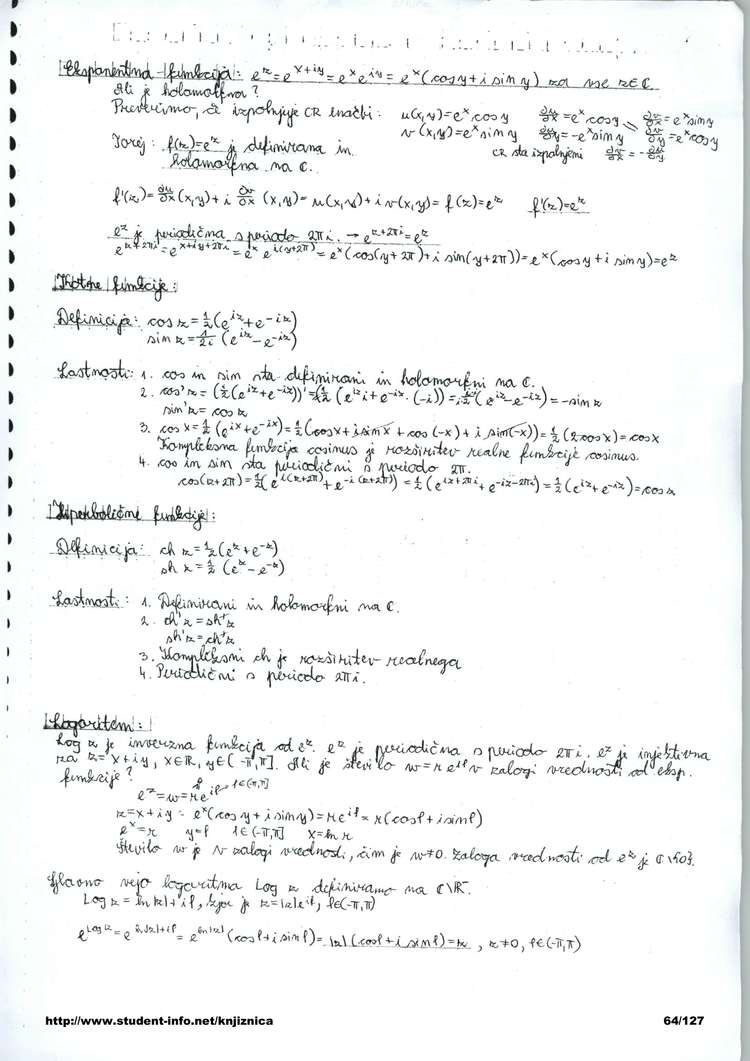 Eksponentna funkcija: e^z = e^{x+iy} = e^x e^{iy} = e^x (cos y + i sin y) za vse z∈ℂ.
Ali je holomorfna?
Preverimo, če izpolnjuje CR enačbi: u(x,y) = e^x cos y ∂u/∂x = e^x cos y ∂v/∂x = e^x sin y
v(x,y) = e^x sin y ∂u/∂y = -e^x sin y ∂v/∂y = e^x cos y
Torej: f(z) = e^z je definirana in CR sta izpolnjeni ∂v/∂x = -∂u/∂y
holomorfna na ℂ.
f'(z) = ∂u/∂x (x,y) + i ∂v/∂x (x,y) = u(x,y) + i v(x,y) = f(z) = e^z f'(z) = e^z
e^z je periodična s periodo 2πi. → e^{z+2πi} = e^z
e^{z+2πi} = e^{x+iy+2πi} = e^x e^{i(y+2π)} = e^x (cos(y+2π) + i sin(y+2π)) = e^x (cos y + i sin y) = e^z
Kotne funkcije:
Definicija: cos z = 1/2 (e^{iz} + e^{-iz})
sin z = 1/2i (e^{iz} - e^{-iz})
Lastnosti: 1. cos in sin sta definirani in holomorfni na ℂ.
2. cos' z = (1/2 (e^{iz} + e^{-iz}))' = 1/2 (e^{iz} i + e^{-iz} · (-i)) = i · 1/2 (e^{iz} - e^{-iz}) = -sin z
sin' z = cos z
3. cos x = 1/2 (e^{ix} + e^{-ix}) = 1/2 (cos x + i sin x + cos(-x) + i sin(-x)) = 1/2 (2cos x) = cos x
Kompleksna funkcija cosinus je razširitev realne funkcije cosinus.
4. cos in sin sta periodični s periodo 2π.
cos(z+2π) = 1/2 (e^{i(z+2π)} + e^{-i(z+2π)}) = 1/2 (e^{iz+2πi} + e^{-iz-2πi}) = 1/2 (e^{iz} + e^{-iz}) = cos z
Hiperbolične funkcije:
Definicija: ch z = 1/2 (e^z + e^{-z})
sh z = 1/2 (e^z - e^{-z})
Lastnosti: 1. Definirani in holomorfni na ℂ.
2. ch' z = sh z
sh' z = ch z
3. Kompleksni ch je razširitev realnega
4. Periodični s periodo 2πi.
Logaritem:
Log z je inverzna funkcija od e^z. e^z je periodična s periodo 2πi. e^z je injektivna
za z = x+iy, x∈ℝ, y∈(-π,π]. Ali je število w = r e^{iφ} v zalogi vrednosti od eksp.
funkcije?
e^z = w = r e^{iφ} φ∈(-π,π]
z = x+iy : e^x (cos y + i sin y) = r e^{iφ} = r (cos φ + i sin φ)
e^x = r y = φ φ∈(-π,π] x = ln r
Število w je v zalogi vrednosti, čim je w≠0. Zaloga vrednosti od e^z je ℂ\{0}.
Glavno vejo logaritma Log z definiramo na ℂ\ℝ⁻.
Log z = ln|z| + iφ, kjer je z = |z| e^{iφ}, φ∈(-π,π)
e^{Log z} = e^{ln|z|+iφ} = e^{ln|z|} (cos φ + i sin φ) = |z| (cos φ + i sin φ) = z , z≠0, φ∈(-π,π)
http://www.student-info.net/knjiznica 64/127